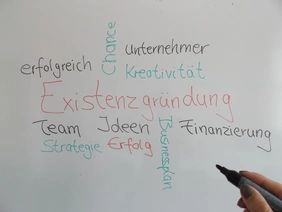 Chance
Unternehmer
erfolgreich
Kreativität
Existenzgründung
Team Ideen
Finanzierung
Strategie Erfolg
Businessplan